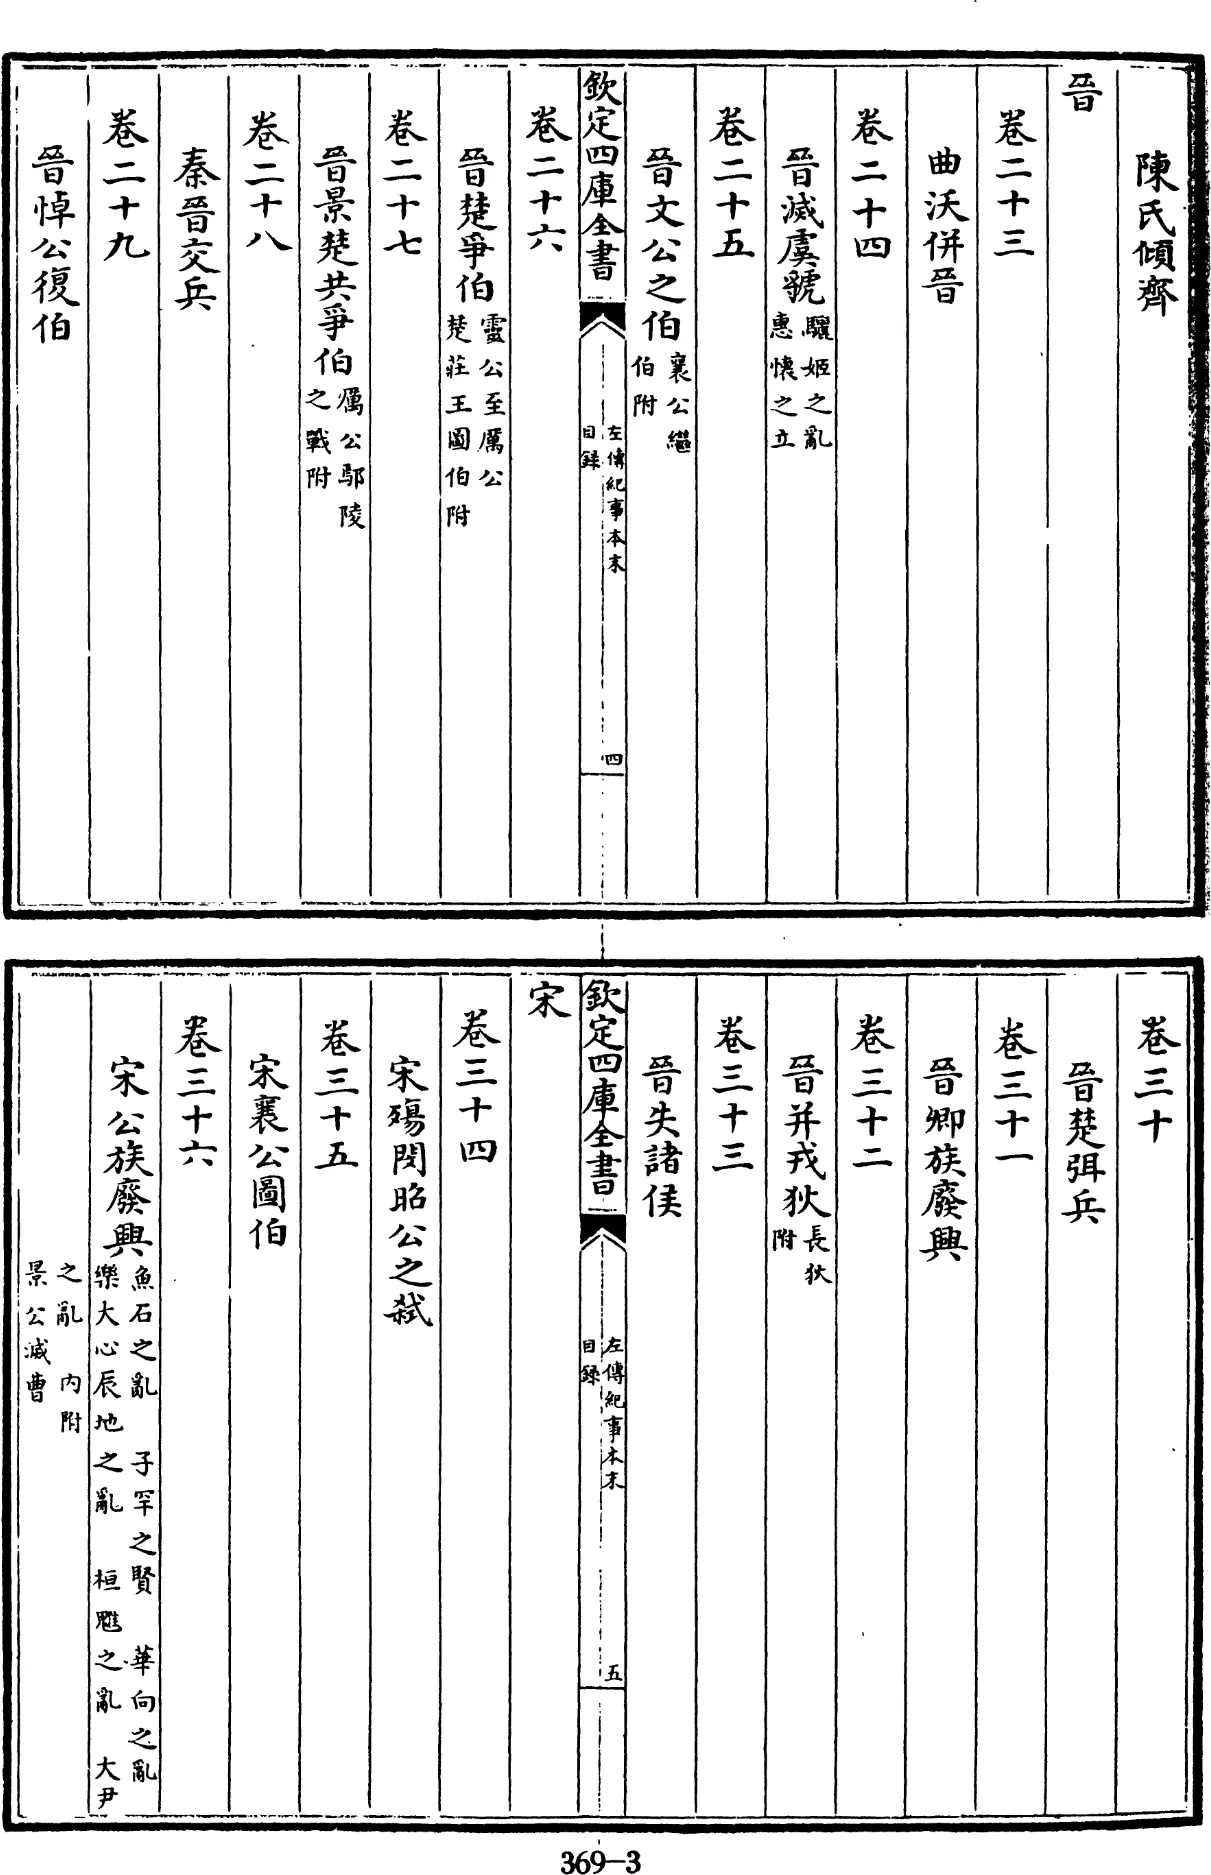 陳氏傾齊
晉
卷二十三
曲沃併晉
卷二十四
晉滅虞虢驪姬之亂
惠懷之立
卷二十五
晉文公之伯襄公繼
伯附
欽定四庫全書
左傳紀事本末
目錄
四
卷二十六
晉楚爭伯靈公至厲公
楚莊王圖伯附
卷二十七
晉景楚共爭伯厲公鄢陵
之戰附
卷二十八
秦晉交兵
卷二十九
晉悼公復伯
卷三十
晉楚弭兵
卷三十一
晉卿族廢興
卷三十二
晉并戎狄長狄
附
卷三十三
晉失諸侯
欽定四庫全書
左傳紀事本末
目錄
五
宋
卷三十四
宋殤閔昭公之弒
卷三十五
宋襄公圖伯
卷三十六
宋公族廢興魚石之亂 子罕之賢 華向之亂
樂大心辰地之亂 桓魋之亂 大尹
之亂 內附
景公滅曹
369-3